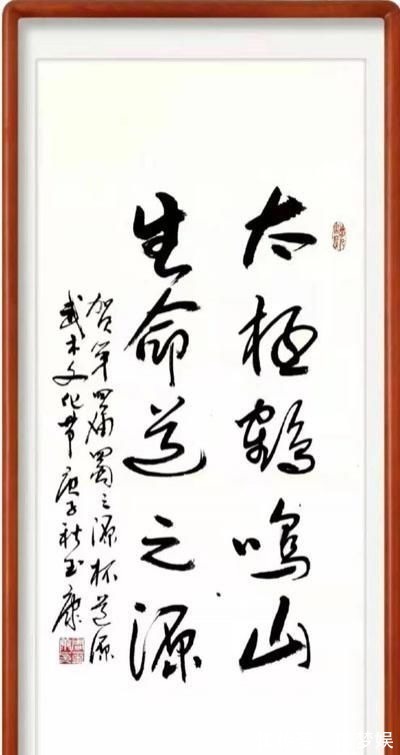 太极鹤鸣山
生命道之源
贺第四届蜀之源杯道源
武术文化节庚子秋玉康